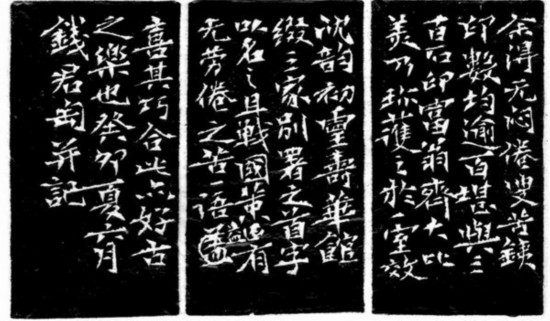 余得无悶倦叟苦鐵
印數均逾百堪與三
百石印富翁齊大比
美乃珍護之於一室效
沈韵初靈壽華館
綴三家別署之首字
以名之且戰國策有
无勞倦之苦一語
喜其巧合此亦好古
之樂也癸卯夏六月
錢君匋并記